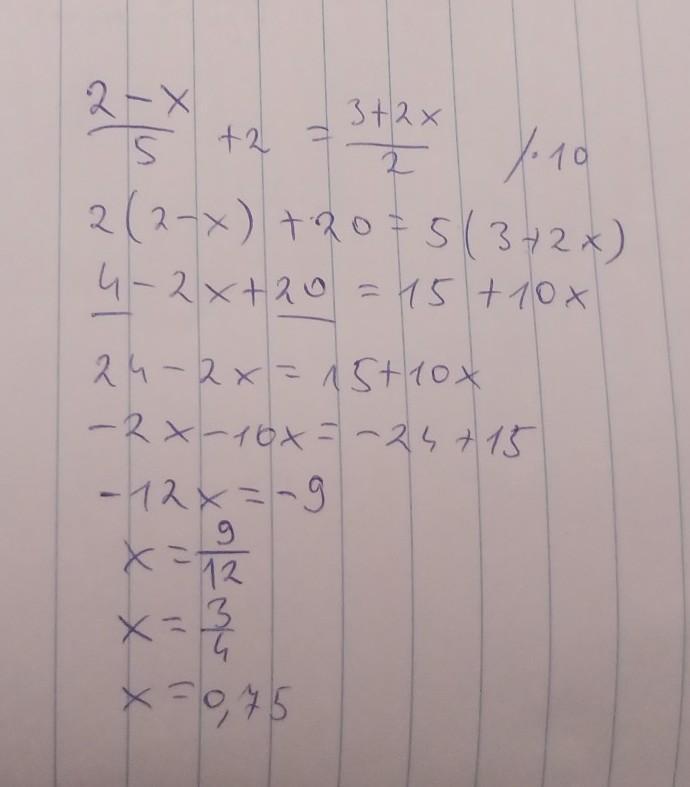 (2-x)/5 +2 = (3+2x)/2 /·10
2(2-x) +20 = 5(3+2x)
4-2x+20 = 15 +10x
24-2x = 15+10x
-2x-10x = -24+15
-12x = -9
x = 9/12
x = 3/4
x = 0,75